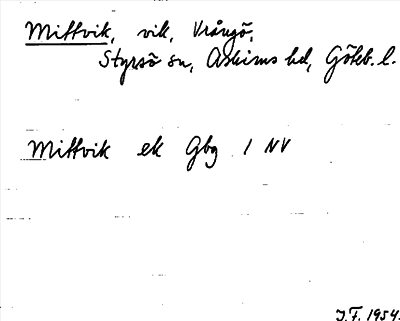 Mittvik, vik, Vrångö,
Styrsö sn, Askims hd, Göteb. l.
Mittvik ek Gbg 1 NV
J.F. 1954.